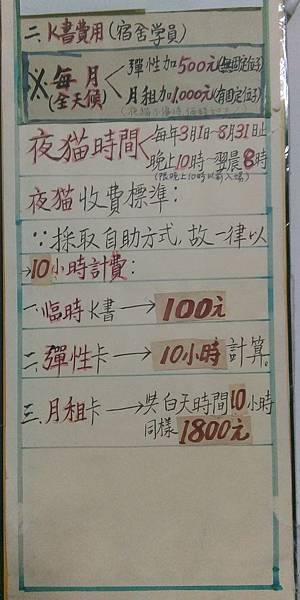 二、K書費用(宿舍学員)
※每月(全天候)
彈性加500元(無固定位子)
月租加1,000元(有固定位子)
夜猫時間
每年3月1日~8月31日止
晚上10時~翌晨8時
(限晚上10時以前入場)
夜猫收費標準:
∵採取自助方式,故一律以
→10小時計費:
一、臨時K書→100元
二、彈性卡→10小時計算。
三、月租卡→與白天時間10小時
同樣1800元